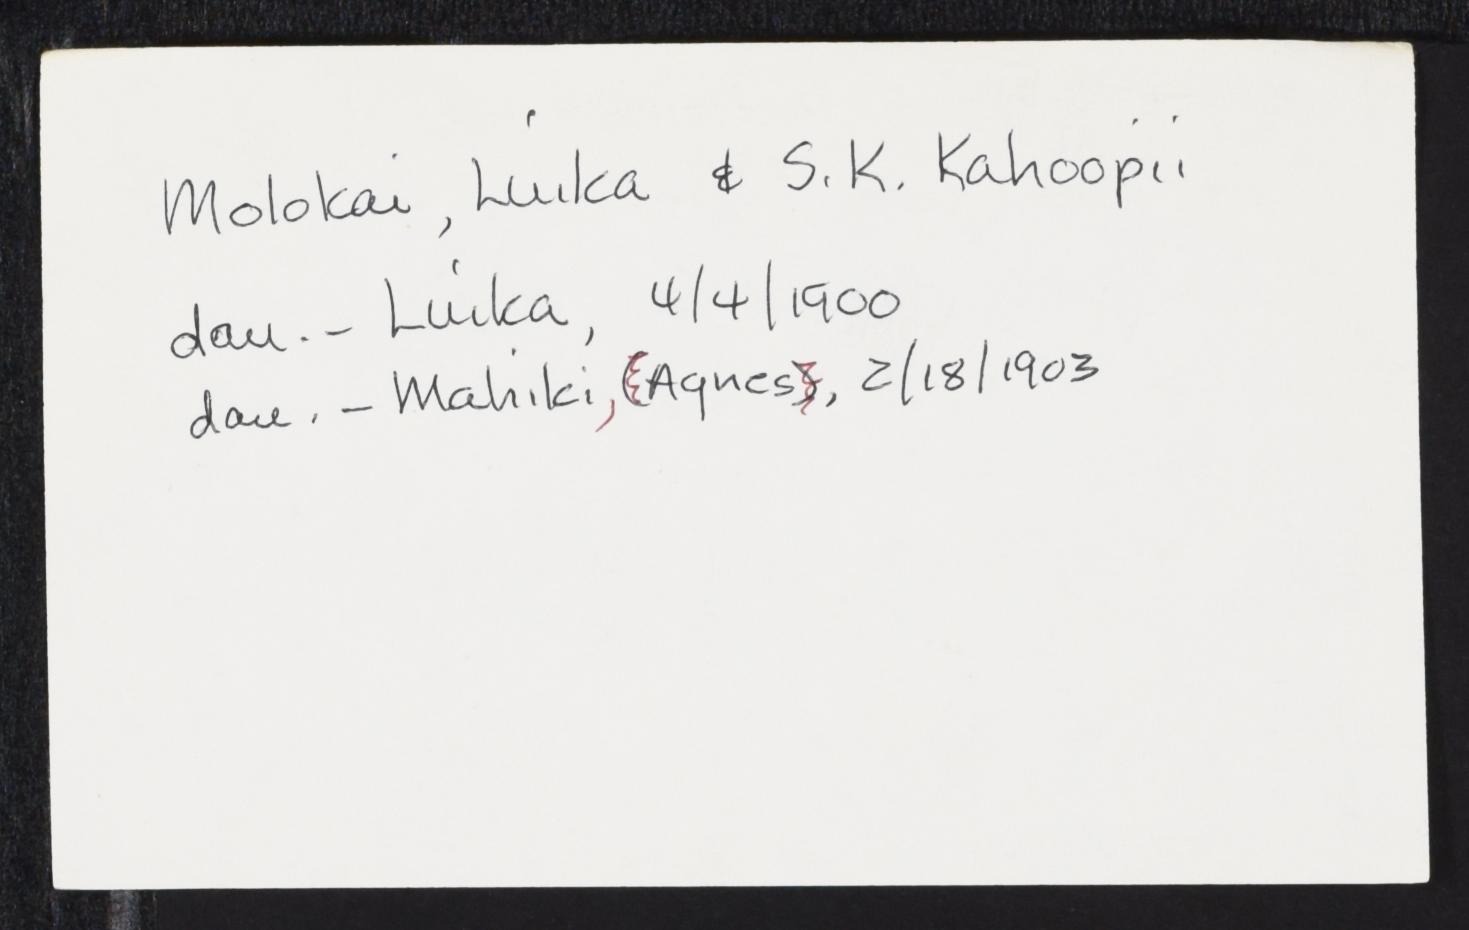 Molokai, Luika & S.K. Kahoopii
dau. - Luika, 4/4/1900
dau. - Mahiki, (Agnes), 2/18/1903